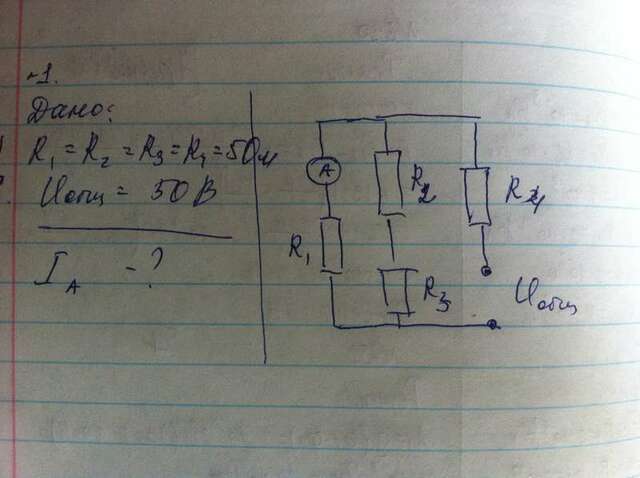 1.
Дано:
R₁ = R₂ = R₃ = R₄ = 5 Ом
Uобщ = 50 В
I_A - ?
A
R₂
R₄
R₁
R₃
Uобщ